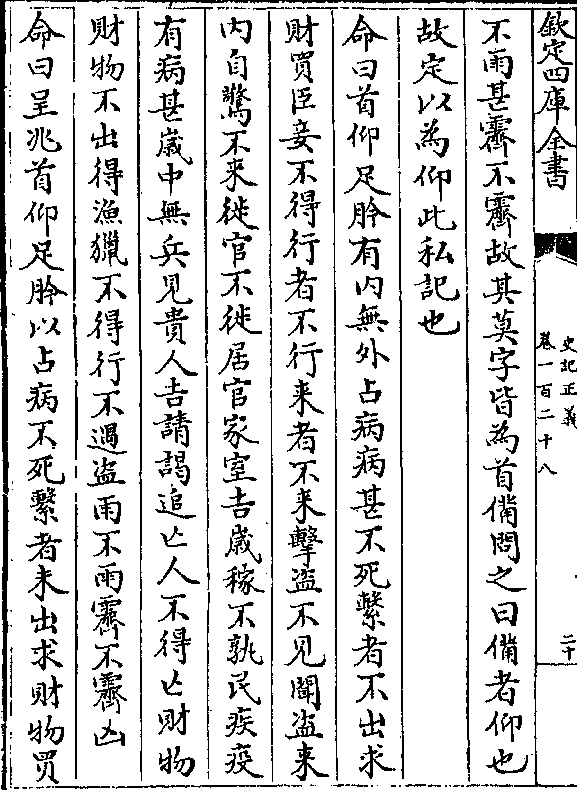 欽定四庫全書
史記正義
卷一百二十八
二十
不雨甚霽不霽故其莫字皆為首備問之曰備者仰也
故定以為仰此私記也
命曰首仰足肣有内無外占病病甚不死繫者不出求
財買臣妾不得行者不行来者不来擊盗不見聞盗来
内自驚不来徙官不徙居官家室吉嵗稼不孰民疾疫
有病甚嵗中無兵見貴人吉請謁追亡人不得亡財物
財物不出得漁獵不得行不遇盗雨不雨霽不霽凶
命曰呈兆首仰足肣以占病不死繫者未出求財物買